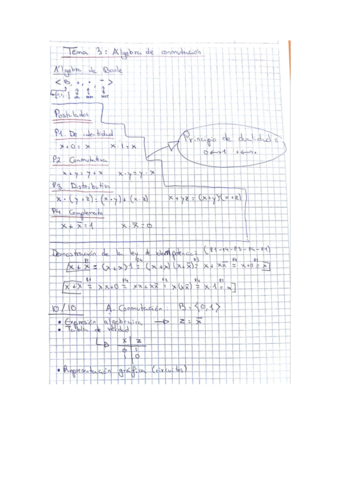 Tema 3: Algebra de conmutación
Algebra de Boole
< B, +, ·, ¯ >
Postulados
P1 De identidad
x + 0 = x    x · 1 = x
Principio de dualidad:
P2 Conmutativa
x + y = y + x    x · y = y · x
P3 Distributiva
x · (y + z) = (x · y) + (x · z)    x + yz = (x + y)(x + z)
P4 Complemento
x + x̄ = 1    x · x̄ = 0
Demostración de la ley de idempotencia (P1-P4-P3-P4-P1)
10/10    A. Conmutación    B = {0,1}
• Expresión algebraica → z = x̄
• Tabla de verdad
x z
0 1
1 0
• Representación gráfica (circuitos)